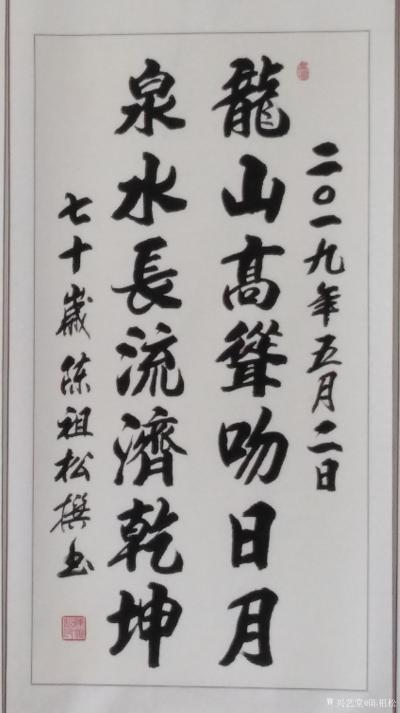 二〇一九年五月二日
龍山髙聳吻日月
泉水長流濟乾坤
七十歲陈祖松撰书
兴艺堂@陈祖松